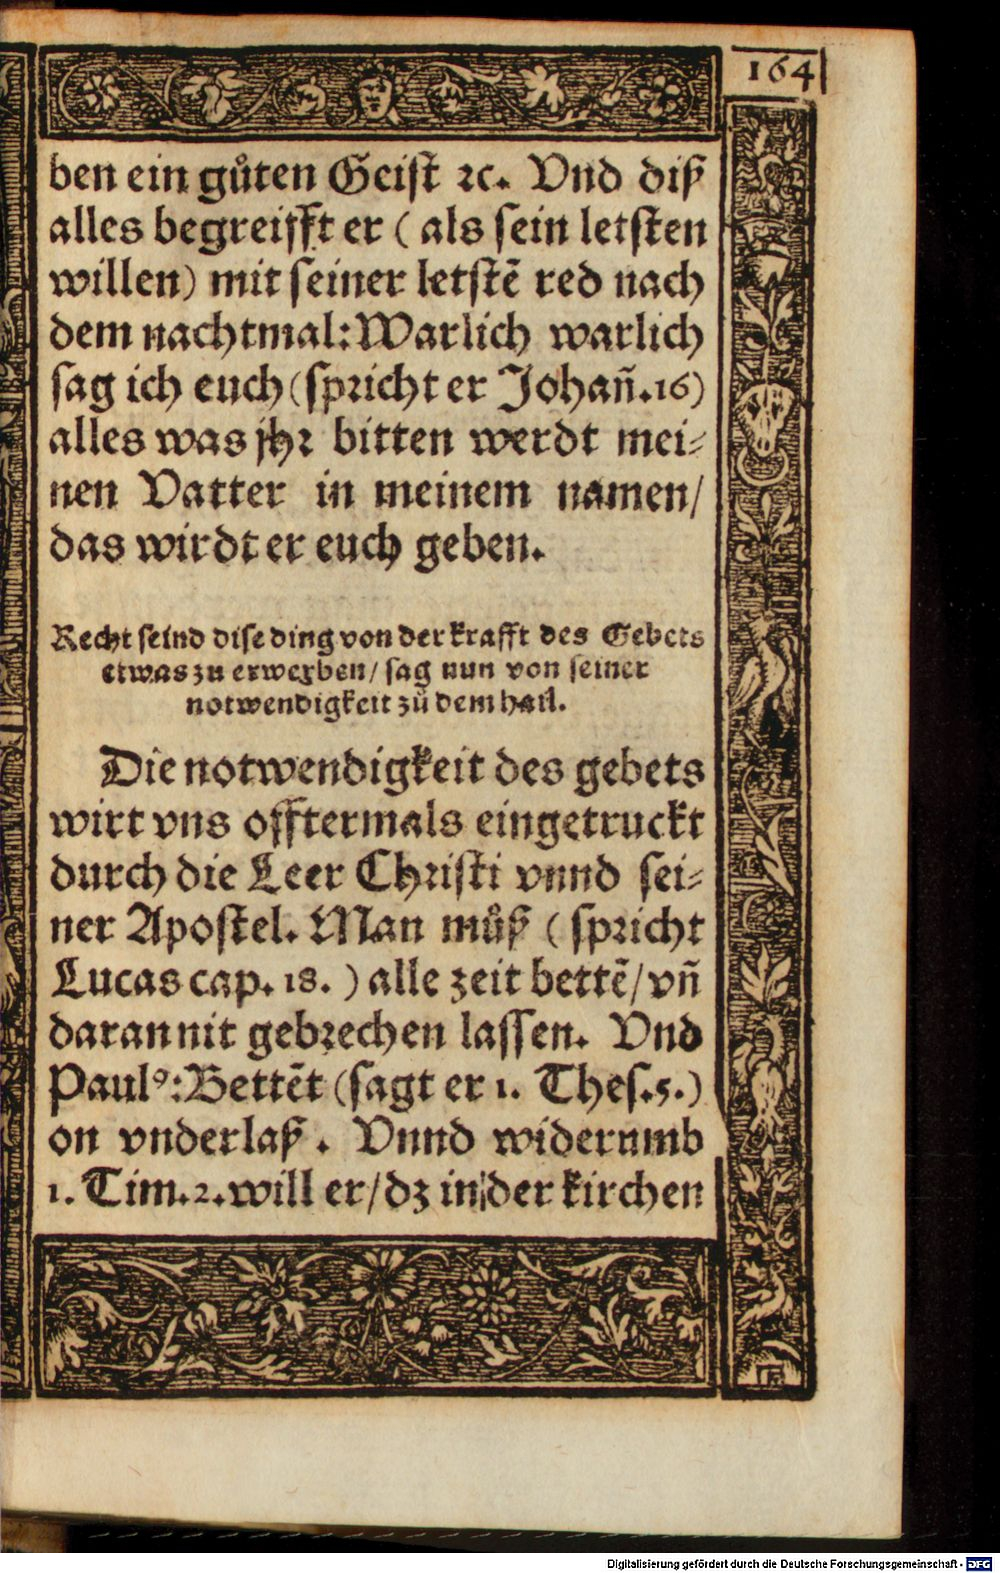 164
ben ein gůten Geist ꝛc. Vnd diß
alles begreifft er ( als sein letsten
willen) mit seiner letstē red nach
dem nachtmal: Warlich warlich
sag ich euch (spricht er Johañ. 16)
alles was jhr bitten werdt mei⸗
nen Vatter in meinem namen/
das wirdt er euch geben.
Recht seind dise ding von der krafft des Gebets
etwas zu erwerben/ sag nun von seiner
notwendigkeit zů dem hail.
Die notwendigkeit des gebets
wirt vns offtermals eingetruckt
durch die Leer Christi vnnd sei⸗
ner Apostel. Man můß ( spricht
Lucas cap. 18. ) alle zeit bettē/ vñ
daran nit gebrechen lassen. Vnd
Paulꝰ: Bettēt (sagt er 1. Thes. 5.)
on vnderlaß . Vnnd widerumb
1. Tim. 2. will er/ dz in der kirchen
Digitalisierung gefördert durch die Deutsche Forschungsgemeinschaft - DFG